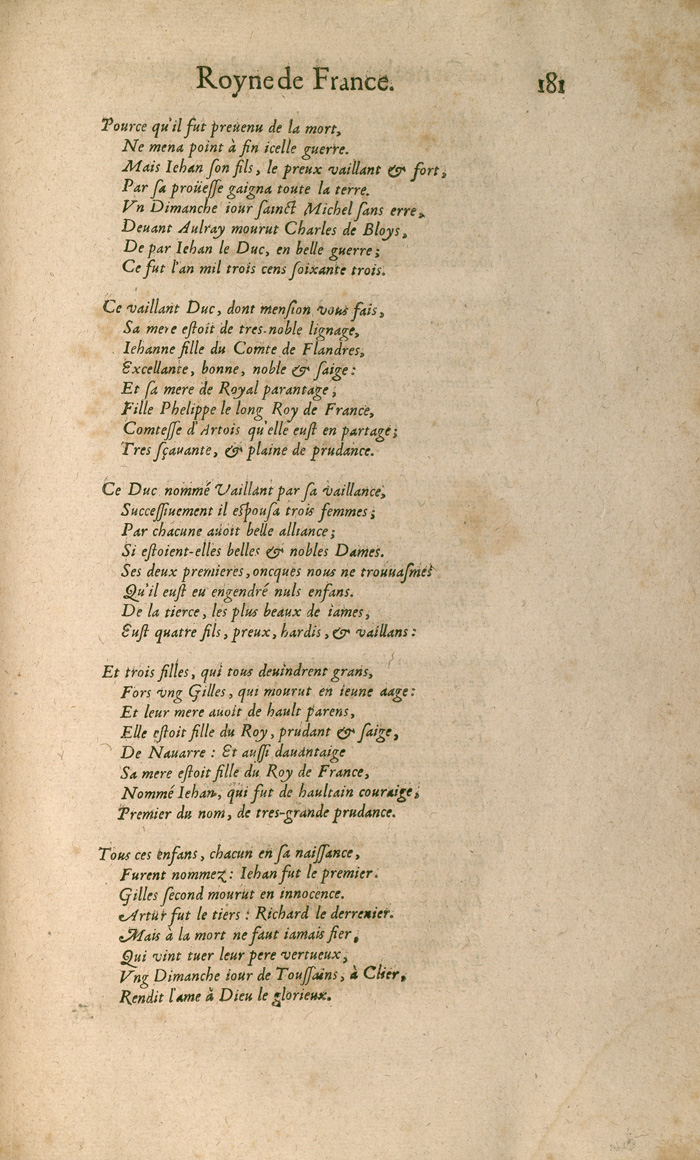 Royne de France. 181
Pource qu'il fut preuenu de la mort,
Ne mena point à fin icelle guerre.
Mais Iehan ſon fils, le preux vaillant & fort,
Par ſa proüeſſe gaigna toute la terre.
Vn Dimanche iour ſainct Michel ſans erre,
Deuant Aulray mourut Charles de Bloys,
De par Iehan le Duc, en belle guerre;
Ce fut l'an mil trois cens ſoixante trois.
Ce vaillant Duc, dont menſion vous fais,
Sa mere eſtoit de tres-noble lignage,
Iehanne fille du Comte de Flandres,
Excellante, bonne, noble & ſaige:
Et ſa mere de Royal parantage;
Fille Phelippe le long Roy de France,
Comteſſe d'Artois qu'elle euſt en partage;
Tres ſçauante, & plaine de prudance.
Ce Duc nommé Vaillant par ſa vaillance,
Succeſſiuement il eſpouſa trois femmes;
Par chacune auoit belle alliance;
Si eſtoient-elles belles & nobles Dames.
Ses deux premieres, oncques nous ne trouuaſmes
Qu'il euſt eu engendré nuls enfans.
De la tierce, les plus beaux de iames,
Euſt quatre fils, preux, hardis, & vaillans:
Et trois filles, qui tous deuindrent grans,
Fors vng Gilles, qui mourut en ieune aage:
Et leur mere auoit de hault parens,
Elle eſtoit fille du Roy, prudant & ſaige,
De Nauarre: Et auſſi dauantaige
Sa mere eſtoit fille du Roy de France,
Nommé Iehan, qui fut de haultain couraige;
Premier du nom, de tres-grande prudance.
Tous ces enfans, chacun en ſa naiſſance,
Furent nommez: Iehan fut le premier.
Gilles ſecond mourut en innocence.
Artur fut le tiers: Richard le derrenier.
Mais à la mort ne faut iamais fier,
Qui vint tuer leur pere vertueux,
Vng Dimanche iour de Touſſains, à Clier,
Rendit l'ame à Dieu le glorieux.